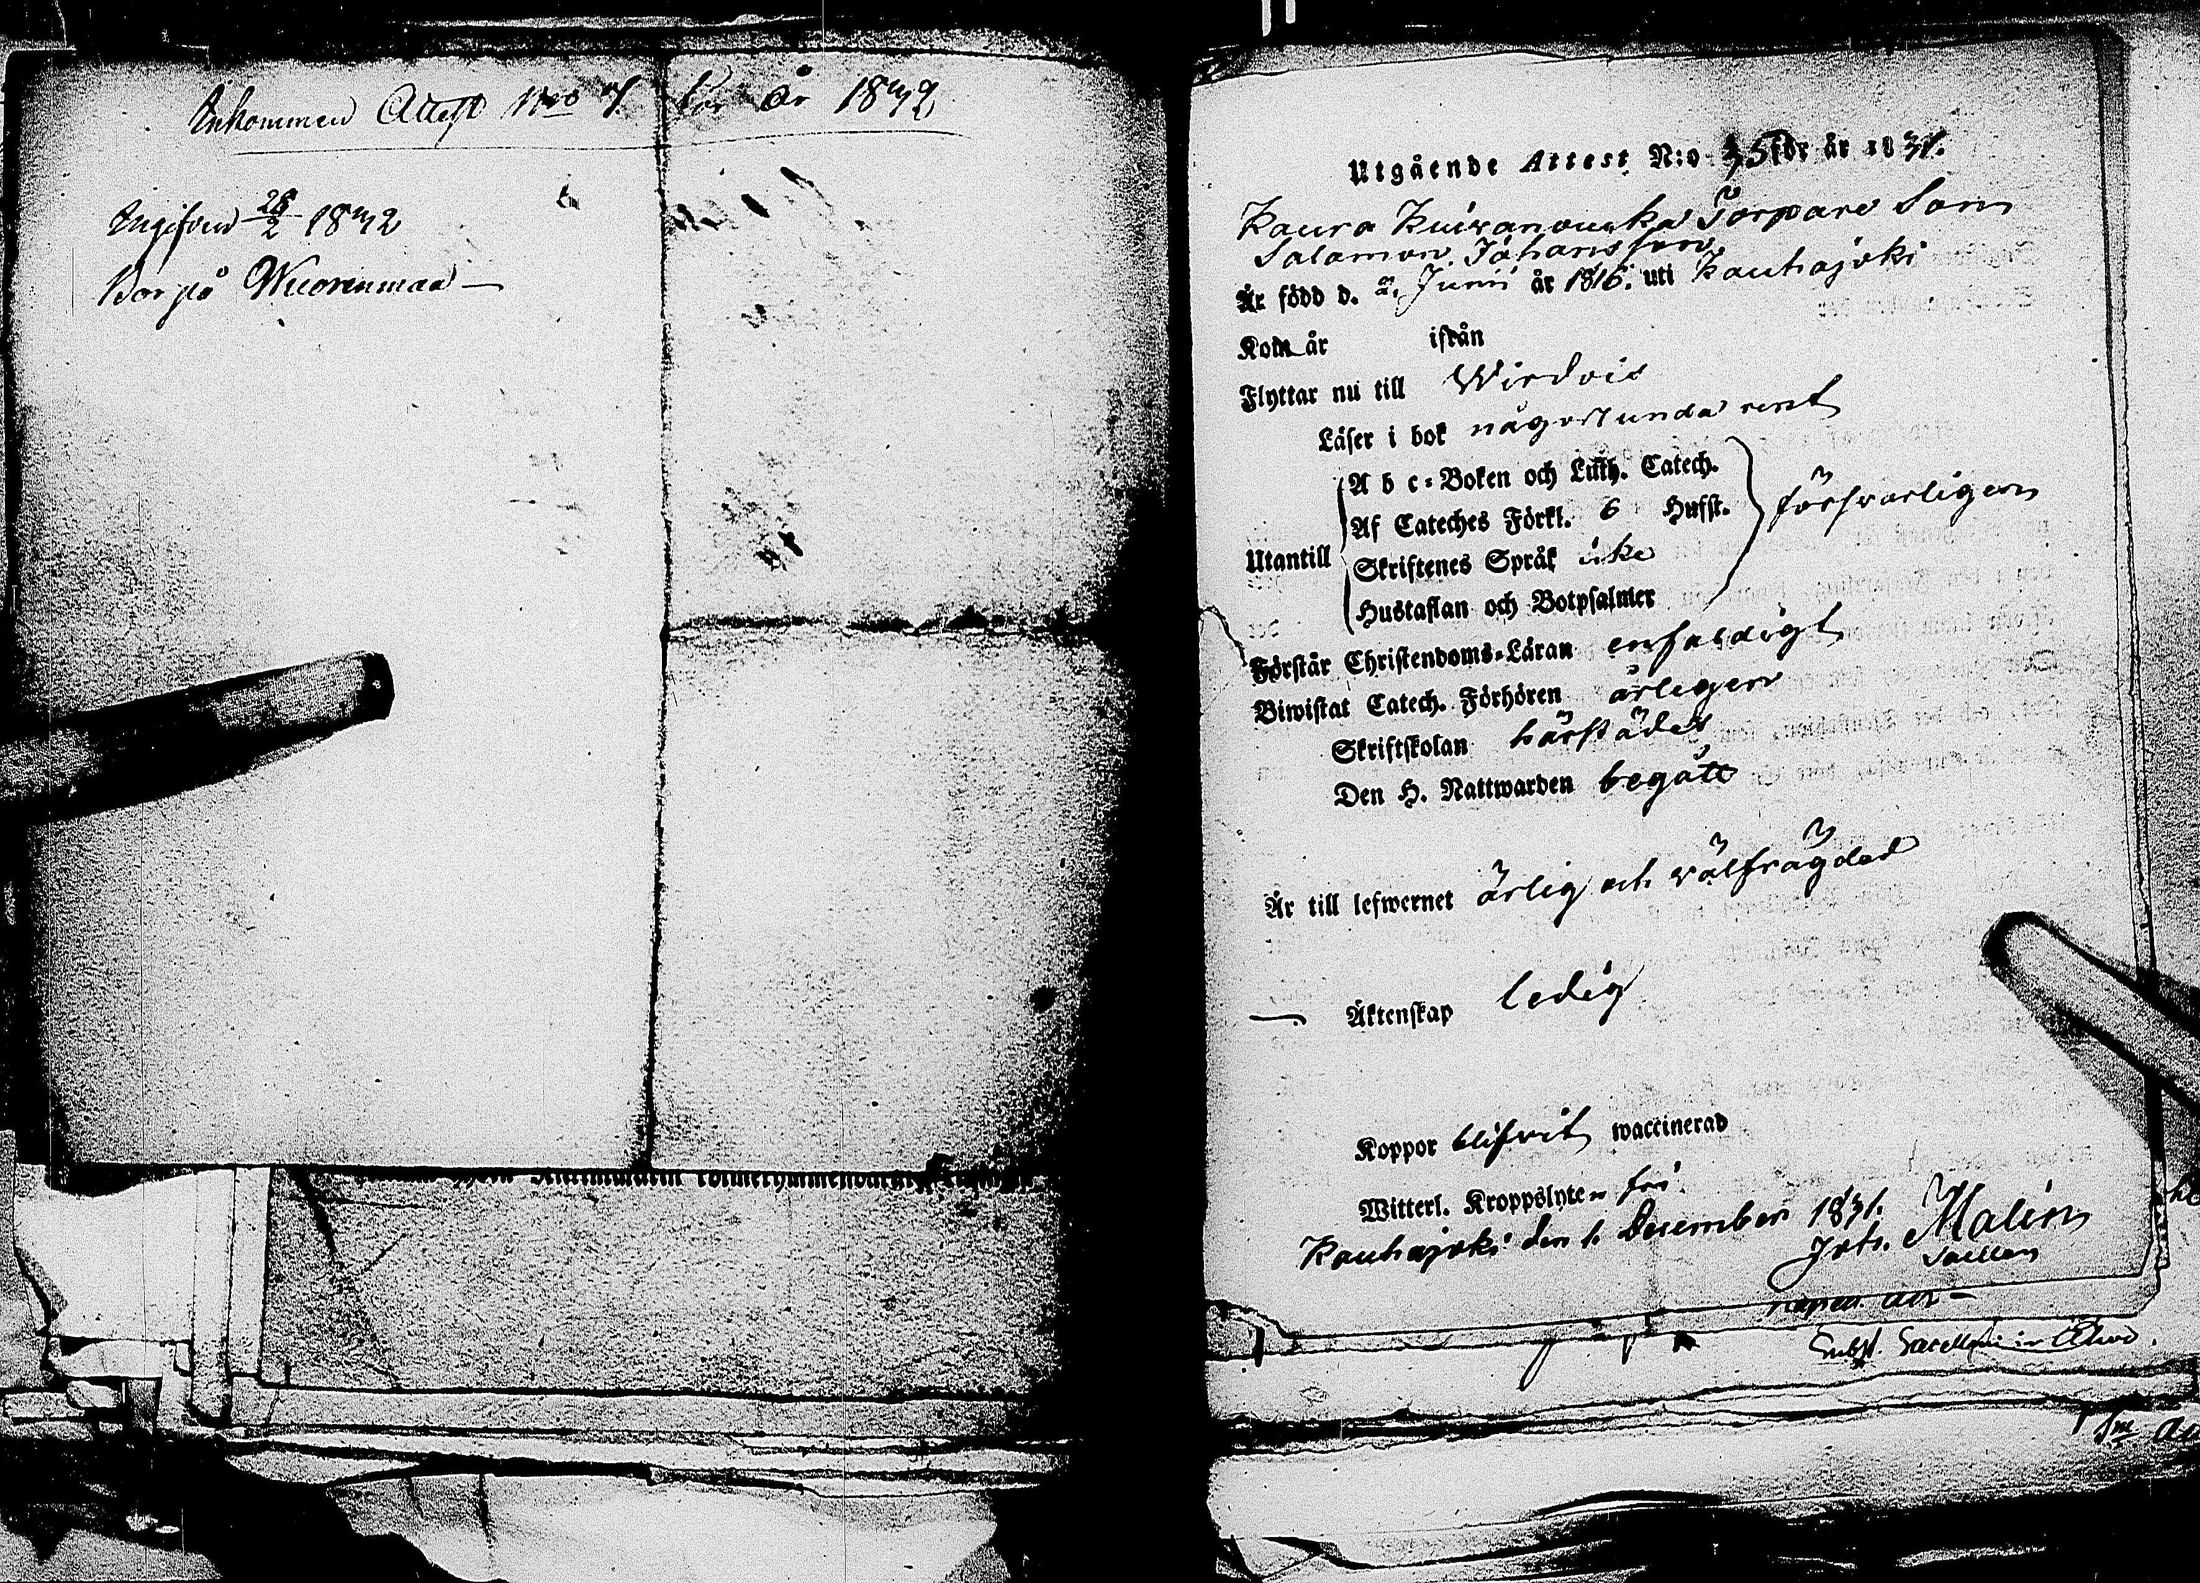 Inkommen Attest Nro 7. för år 1832
Ingifven 28/2 1832
Bor på Wuorenmaa
Utgående Attest N:o 35 för år 1831.
Torpare Son
Salamon Johansson
Är född d. 2. Junii år 1816. uti Kauhajoki
Kom år ifrån
Flyttar nu till Wirdois
Läser i bok någorlunda rent
A b c-Boken och Luth. Catech.
Af Cateches Förkl. 6 Hufst. försvarligen
Utantill
Skriftenes Språk icke
Hustaflan och Botpsalmer
Förstår Christendoms-Läran enfaldigt
Biwistat Catech. Förhören årligen
Skriftskolan härstädes
Den H. Nattwarden begått
Är till lefwernet ärlig och välfrägdad
Äktenskap ledig
Koppor blifvit waccinerad
Witterl. Kroppslyten fri
Kauhajoki den 1. December 1831.
Joh. Malin
Sacellan